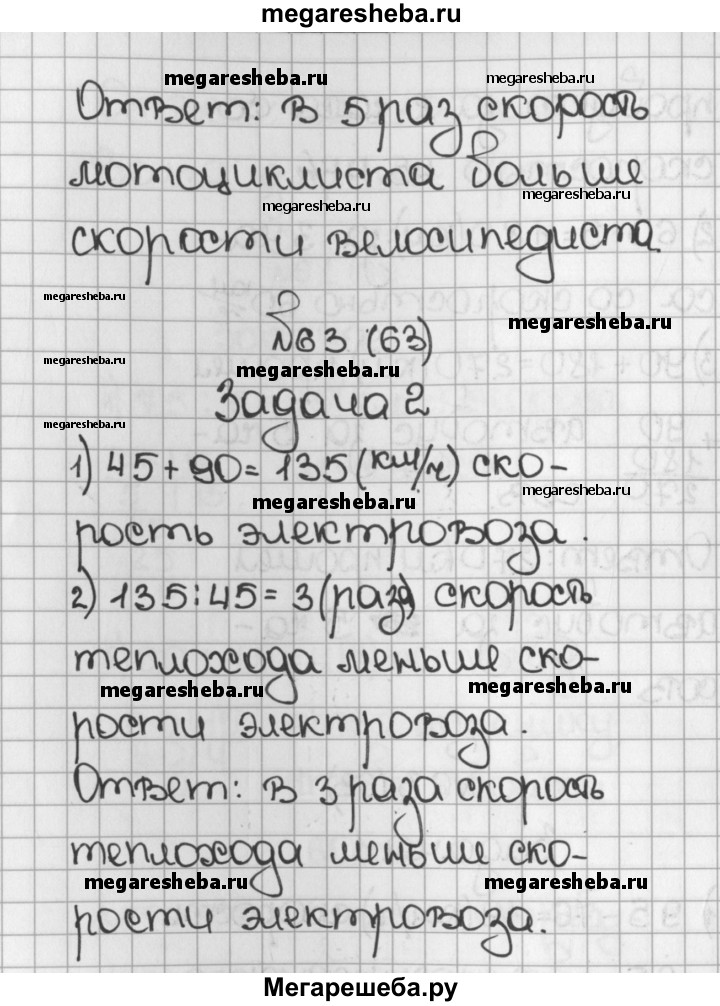 megaresheba.ru
megaresheba.ru
megaresheba.ru
Ответ: в 5 раз скорость
мотоциклиста больше
megaresheba.ru
megaresheba.ru
скорости велосипедиста.
megaresheba.ru
№63 (63)
megaresheba.ru
megaresheba.ru
megaresheba.ru
Задача 2
megaresheba.ru
1) 45 + 90 = 135 (км/ч) ско-
megaresheba.ru
megaresheba.ru
рость электровоза.
2) 135 : 45 = 3 (раза) скорость
теплохода меньше ско-
megaresheba.ru
megaresheba.ru
рости электровоза.
Ответ: в 3 раза скорость
теплохода меньше ско-
megaresheba.ru
megaresheba.ru
рости электровоза.
Мегарешеба.ру